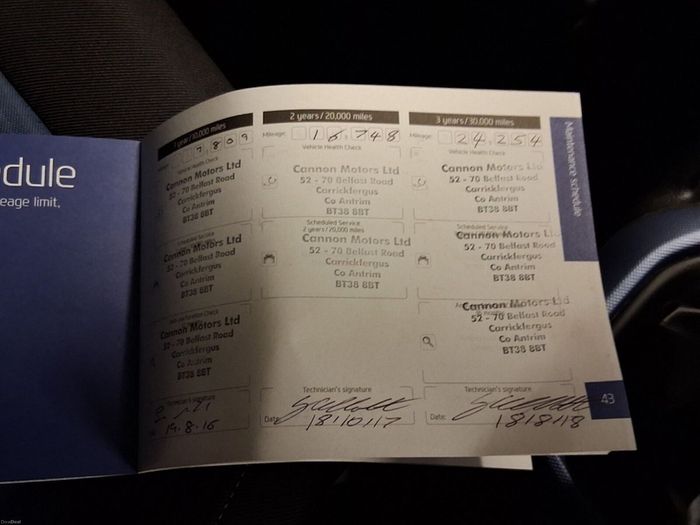 dule
eage limit,
1 year/10,000 miles
7 8 0 9
Vehicle Health Check
Cannon Motors Ltd
52 - 70 Belfast Road
Carrickfergus
Co Antrim
BT38 8BT
Scheduled Service
Cannon Motors Ltd
52 - 70 Belfast Road
Carrickfergus
Co Antrim
BT38 8BT
Cannon Motors Ltd
52 - 70 Belfast Road
Carrickfergus
Co Antrim
BT38 8BT
Technician's signature
19.8.16
2 years/20,000 miles
Mileage: 1 6, 7 4 8
Vehicle Health Check
Cannon Motors Ltd
52 - 70 Belfast Road
Carrickfergus
Co Antrim
BT38 8BT
Scheduled Service
2 years/20,000 miles
Cannon Motors Ltd
52 - 70 Belfast Road
Carrickfergus
Co Antrim
BT38 8BT
Technician's signature
Date: 18/10/17
3 years/30,000 miles
Mileage: 2 4, 2 5 4
Vehicle Health Check
Cannon Motors Ltd
52 - 70 Belfast Road
Carrickfergus
Co Antrim
BT38 8BT
Cannon Motors Ltd
52 - 70 Belfast Road
Carrickfergus
Co Antrim
BT38 8BT
Cannon Motors Ltd
52 - 70 Belfast Road
Carrickfergus
Co Antrim
BT38 8BT
Technician's signature
Date: 18/8/18
Maintenance schedule
43